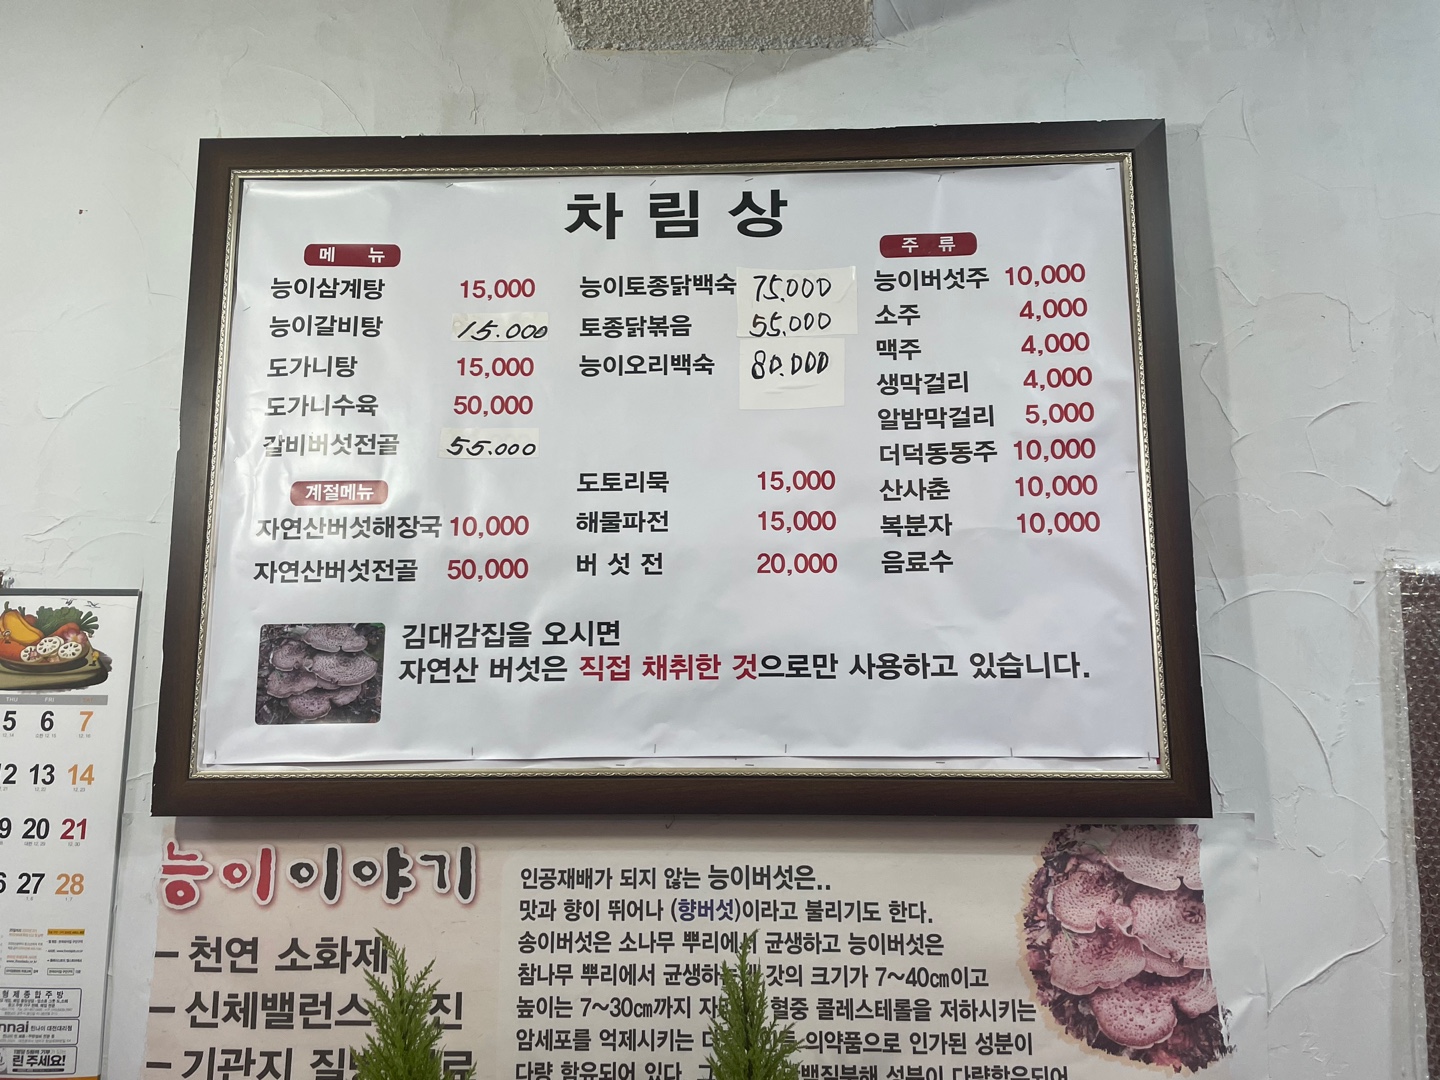 차림상
메 뉴
능이삼계탕 15,000
능이갈비탕 15.000
도가니탕 15,000
도가니수육 50,000
갈비버섯전골 55.000
계절메뉴
자연산버섯해장국 10,000
자연산버섯전골 50,000
능이토종닭백숙 75.000
토종닭볶음 55.000
능이오리백숙 80.000
도토리묵 15,000
해물파전 15,000
버 섯 전 20,000
주 류
능이버섯주 10,000
소주 4,000
맥주 4,000
생막걸리 4,000
알밤막걸리 5,000
더덕동동주 10,000
산사춘 10,000
복분자 10,000
음료수
김대감집을 오시면
자연산 버섯은 직접 채취한 것으로만 사용하고 있습니다.
THU FRI
5 6 7
12 13 14
20 21
27 28
형제종합주방
린 주세요!
능이이야기
- 천연 소화제
- 신체밸런스
- 기관지
인공재배가 되지 않는 능이버섯은..
맛과 향이 뛰어나 (향버섯)이라고 불리기도 한다.
송이버섯은 소나무 뿌리에서 균생하고 능이버섯은
참나무 뿌리에서 균생하 갓의 크기가 7~40cm이고
높이는 7~30cm까지 혈중 콜레스테롤을 저하시키는
암세포를 억제시키는 의약품으로 인가된 성분이
다량 함유되어 있다. 성분이 다량함유되어